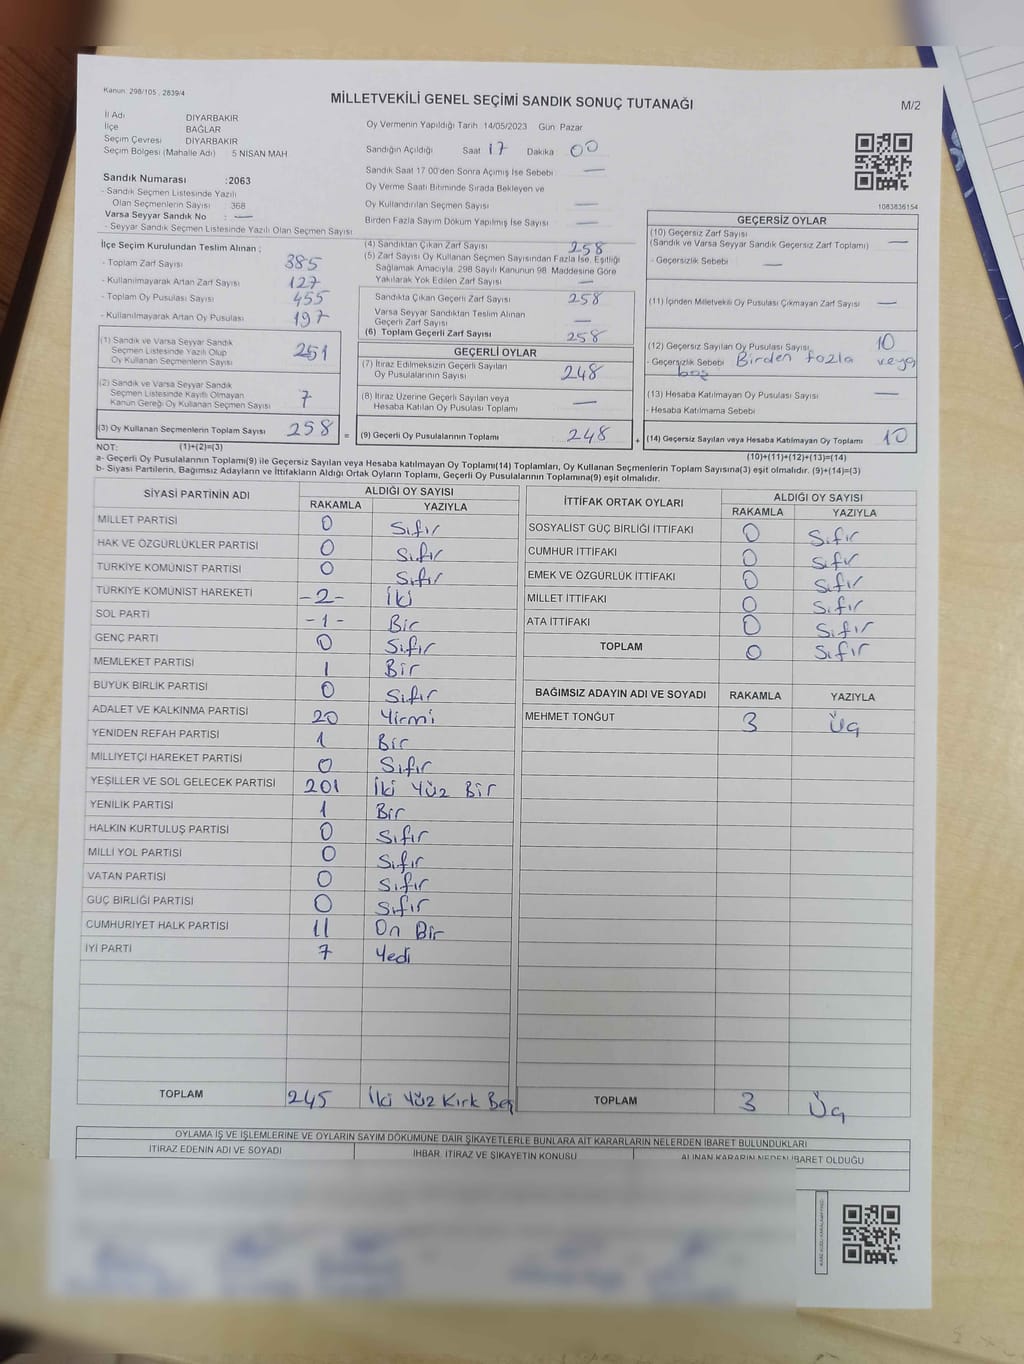 Kanun. 298/105 , 2839/4
MİLLETVEKİLİ GENEL SEÇİMİ SANDIK SONUÇ TUTANAĞI
M/2
İl Adı DİYARBAKIR
İlçe BAĞLAR
Seçim Çevresi DİYARBAKIR
Seçim Bölgesi (Mahalle Adı) 5 NİSAN MAH
Oy Vermenin Yapıldığı Tarih 14/05/2023 Gün Pazar
Sandığın Açıldığı Saat 17 Dakika 00
Sandık Saat 17 00'den Sonra Açımış İse Sebebi —
Oy Verme Saati Bitiminde Sırada Bekleyen ve
Oy Kullandırılan Seçmen Sayısı —
Birden Fazla Sayım Döküm Yapılmış İse Sayısı —
Sandık Numarası :2063
- Sandık Seçmen Listesinde Yazılı
Olan Seçmenlerin Sayısı 368
Varsa Seyyar Sandık No : —
- Seyyar Sandık Seçmen Listesinde Yazılı Olan Seçmen Sayısı
1083836154
İlçe Seçim Kurulundan Teslim Alınan ;
- Toplam Zarf Sayısı 385
- Kullanılmayarak Artan Zarf Sayısı 127
- Toplam Oy Pusulası Sayısı 455
- Kullanılmayarak Artan Oy Pusulası 197
(1) Sandık ve Varsa Seyyar Sandık
Seçmen Listesinde Yazılı Olup
Oy Kullanan Seçmenlerin Sayısı 251
(2) Sandık ve Varsa Seyyar Sandık
Seçmen Listesinde Kayıtlı Olmayan
Kanun Gereği Oy Kullanan Seçmen Sayısı 7
(3) Oy Kullanan Seçmenlerin Toplam Sayısı 258 =
(4) Sandıktan Çıkan Zarf Sayısı 258
(5) Zarf Sayısı Oy Kullanan Seçmen Sayısından Fazla İse, Eşitliği
Sağlamak Amacıyla, 298 Sayılı Kanunun 98. Maddesine Göre
Yakılarak Yok Edilen Zarf Sayısı —
Sandıkta Çıkan Geçerli Zarf Sayısı 258
Varsa Seyyar Sandıktan Teslim Alınan
Geçerli Zarf Sayısı —
(6) Toplam Geçerli Zarf Sayısı 258
GEÇERLİ OYLAR
(7) İtiraz Edilmeksizin Geçerli Sayılan
Oy Pusulalarının Sayısı 248
(8) İtiraz Üzerine Geçerli Sayılan veya
Hesaba Katılan Oy Pusulası Toplamı —
(9) Geçerli Oy Pusulalarının Toplamı 248 +
GEÇERSİZ OYLAR
(10) Geçersiz Zarf Sayısı
(Sandık ve Varsa Seyyar Sandık Geçersiz Zarf Toplamı) —
- Geçersizlik Sebebi —
(11) İçinden Milletvekili Oy Pusulası Çıkmayan Zarf Sayısı —
(12) Geçersiz Sayılan Oy Pusulası Sayısı 10
- Geçersizlik Sebebi Birden fazla veya
boş
(13) Hesaba Katılmayan Oy Pusulası Sayısı —
- Hesaba Katılmama Sebebi
(14) Geçersiz Sayılan veya Hesaba Katılmayan Oy Toplamı 10
NOT: (1)+(2)=(3)
(10)+(11)+(12)+(13)=(14)
a- Geçerli Oy Pusulaları Toplamı(9) ile Geçersiz Sayılan veya Hesaba katılmayan Oy Toplamı(14) Toplamları, Oy Kullanan Seçmenlerin Toplam Sayısına(3) eşit olmalıdır. (9)+(14)=(3)
b- Siyasi Partilerin, Bağımsız Adayların ve İttifakların Aldığı Ortak Oyların Toplamı, Geçerli Oy Pusulalarının Toplamına(9) eşit olmalıdır.
SİYASİ PARTİNİN ADI ALDIĞI OY SAYISI
RAKAMLA YAZIYLA
MİLLET PARTİSİ 0 Sıfır
HAK VE ÖZGÜRLÜKLER PARTİSİ 0 Sıfır
TÜRKİYE KOMÜNİST PARTİSİ 0 Sıfır
TÜRKİYE KOMÜNİST HAREKETİ -2- İki
SOL PARTİ -1- Bir
GENÇ PARTİ 0 Sıfır
MEMLEKET PARTİSİ 1 Bir
BÜYÜK BİRLİK PARTİSİ 0 Sıfır
ADALET VE KALKINMA PARTİSİ 20 Yirmi
YENİDEN REFAH PARTİSİ 1 Bir
MİLLİYETÇİ HAREKET PARTİSİ 0 Sıfır
YEŞİLLER VE SOL GELECEK PARTİSİ 201 İki Yüz Bir
YENİLİK PARTİSİ 1 Bir
HALKIN KURTULUŞ PARTİSİ 0 Sıfır
MİLLİ YOL PARTİSİ 0 Sıfır
VATAN PARTİSİ 0 Sıfır
GÜÇ BİRLİĞİ PARTİSİ 0 Sıfır
CUMHURİYET HALK PARTİSİ 11 On Bir
İYİ PARTİ 7 Yedi
TOPLAM 245 İki Yüz Kırk Beş
İTTİFAK ORTAK OYLARI ALDIĞI OY SAYISI
RAKAMLA YAZIYLA
SOSYALİST GÜÇ BİRLİĞİ İTTİFAKI 0 Sıfır
CUMHUR İTTİFAKI 0 Sıfır
EMEK VE ÖZGÜRLÜK İTTİFAKI 0 Sıfır
MİLLET İTTİFAKI 0 Sıfır
ATA İTTİFAKI 0 Sıfır
TOPLAM 0 Sıfır
BAĞIMSIZ ADAYIN ADI VE SOYADI RAKAMLA YAZIYLA
MEHMET TONĞUT 3 Üç
TOPLAM 3 Üç
OYLAMA İŞ VE İŞLEMLERİNE VE OYLARIN SAYIM DÖKÜMÜNE DAİR ŞİKAYETLERLE BUNLARA AİT KARARLARIN NELERDEN İBARET BULUNDUKLARI
İTİRAZ EDENİN ADI VE SOYADI İHBAR, İTİRAZ VE ŞİKAYETİN KONUSU ALINAN KARARIN NEDEN İBARET OLDUĞU